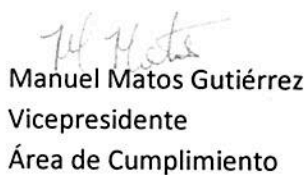 Manuel Matos Gutiérrez
Vicepresidente
Área de Cumplimiento